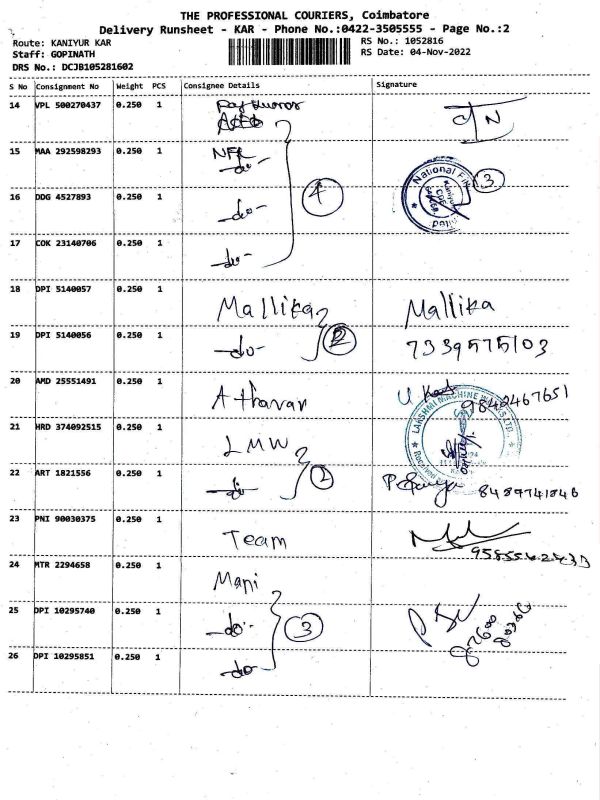 THE PROFESSIONAL COURIERS, Coimbatore
Delivery Runsheet - KAR - Phone No.:0422-3505555 - Page No.:2
Route: KANIYUR KAR
Staff: GOPINATH
DRS No.: DCJB105281602
RS No.: 1052816
RS Date: 04-Nov-2022
S No Consignment No Weight PCS Consignee Details Signature
14 VPL 500270437 0.250 1
15 MAA 292598293 0.250 1 NFL
-do-
National
3
16 DDG 4527893 0.250 1 -do- 4
17 COK 23140706 0.250 1 -do-
18 DPI 5140057 0.250 1 Mallika Mallika
19 DPI 5140056 0.250 1 -do- 2 7339575103
20 AMD 25551491 0.250 1 Atharan 9840467651
LAKSHMI MACHINE WORKS LTD.
21 HRD 374092515 0.250 1 LMW
22 ART 1821556 0.250 1 -do- 2 8489741846
23 PNI 90030375 0.250 1 Team
24 MTR 2294658 0.250 1 Mani
25 DPI 10295740 0.250 1 -do- 3
26 DPI 10295851 0.250 1 -do-